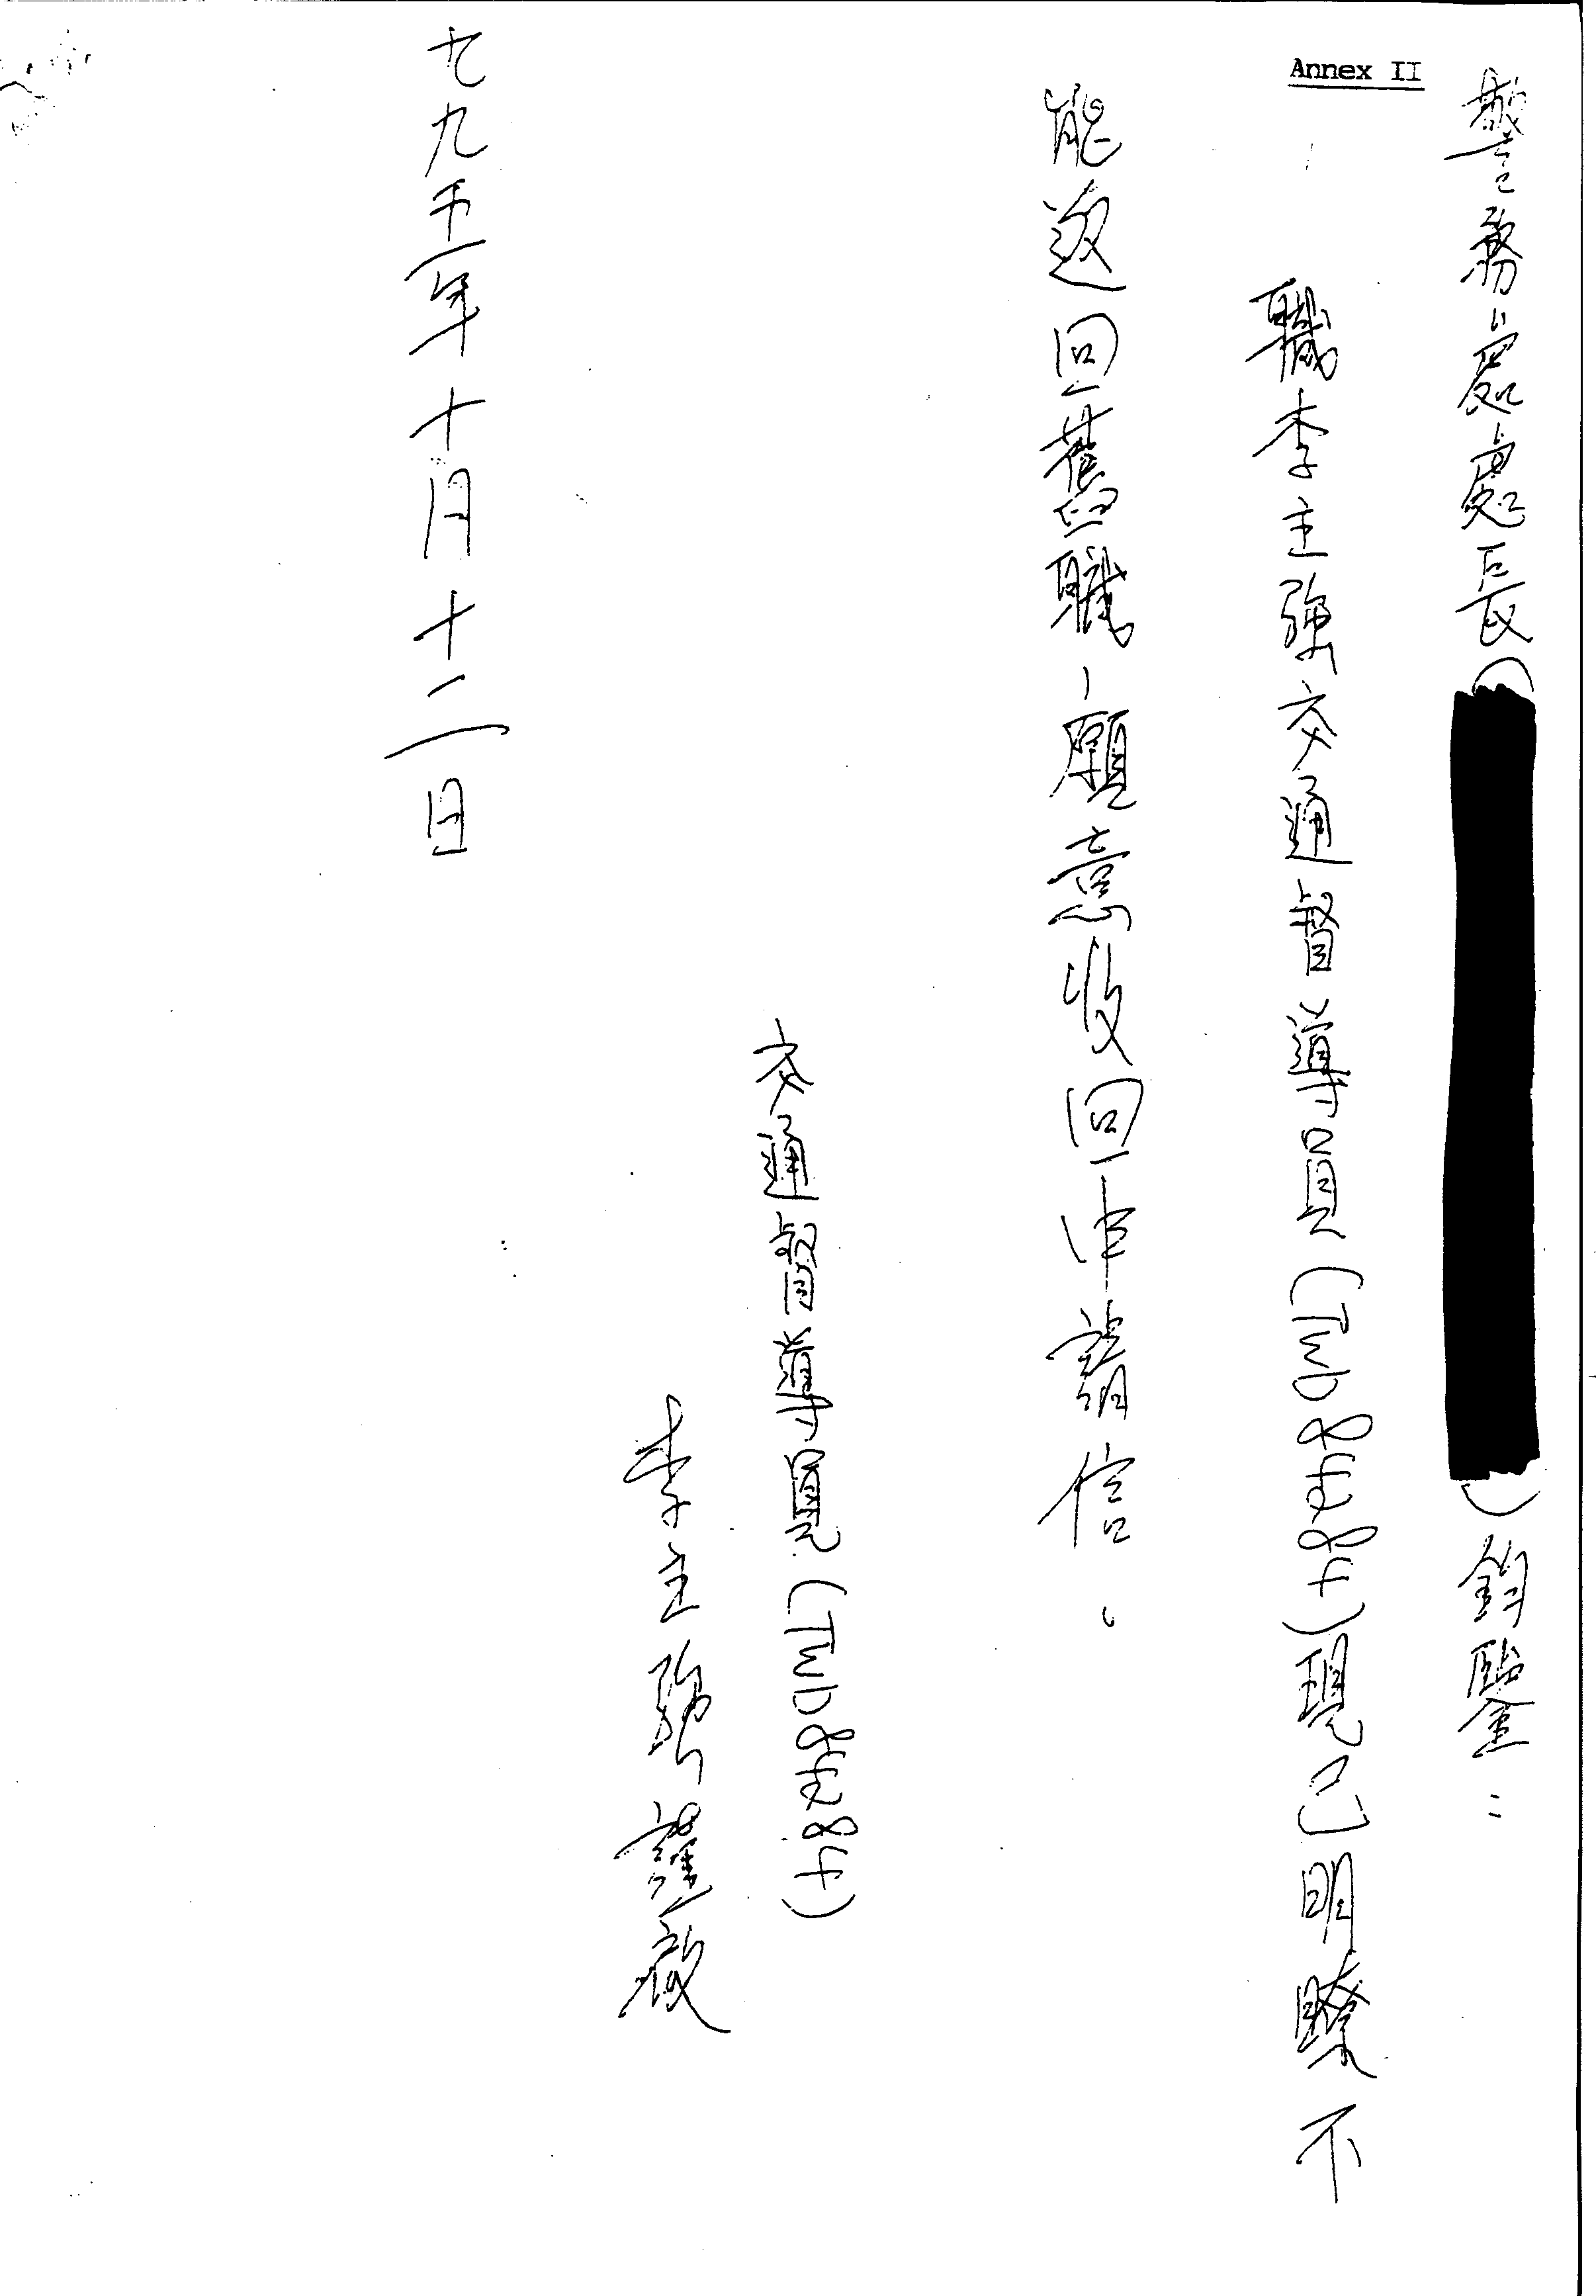 Annex II
警務處處長( )鈞鑒：
職李主強交通督導員(TWD )現已明瞭不
能返回舊職，願意收回申請信。
交通督導員(TWD )
李主強謹啟
一九九五年十月十二日